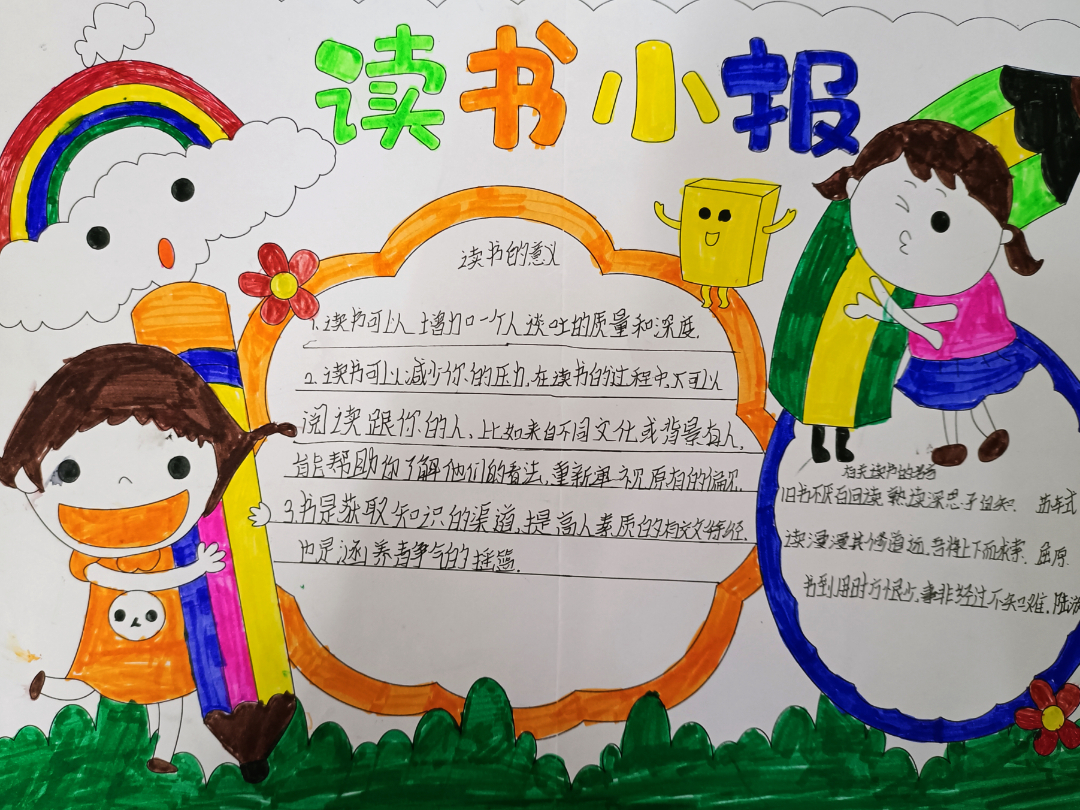 读书小报
读书的意义
1.读书可以增加一个人谈吐的质量和深度.
2.读书可以减少你的压力,在读书的过程中,不可以
阅读跟你的人、比如来自不同文化或背景有人,
帮助你了解他们的看法,重新审视原有的偏见
3.书是获取知识的渠道,提高人素质的文
也是涵养书气的摇篮.
相关读书的名句
旧书不厌百回读 熟读深思子自知.
读漫漫其修道远,吾将上下而求索. 屈原.
书到用时方恨少,事非经过不知难.陆游